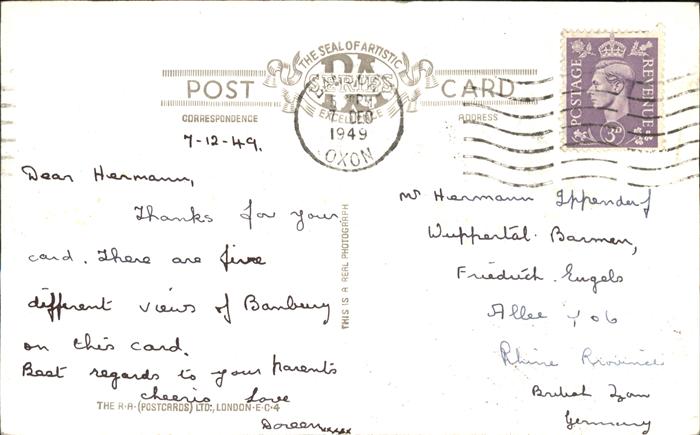 THE SEAL OF ARTISTIC
RA
SERIES
EXCELLENCE
POST CARD
CORRESPONDENCE
ADDRESS
DEC
1949
OXON
POSTAGE REVENUE
3D
7-12-49.
Dear Hermann,
Thanks for your
card. There are five
different views of Banbury
on this card.
Best regards to your parents
cheerio love
Doreen xxxxx
THIS IS A REAL PHOTOGRAPH
THE R·A·(POSTCARDS) LTD., LONDON·E·C·4
Mr Hermann Ippendorf
Wuppertal. Barmen,
Friedrich. Engels
Allee
Rhine Province
British Zon
Germany